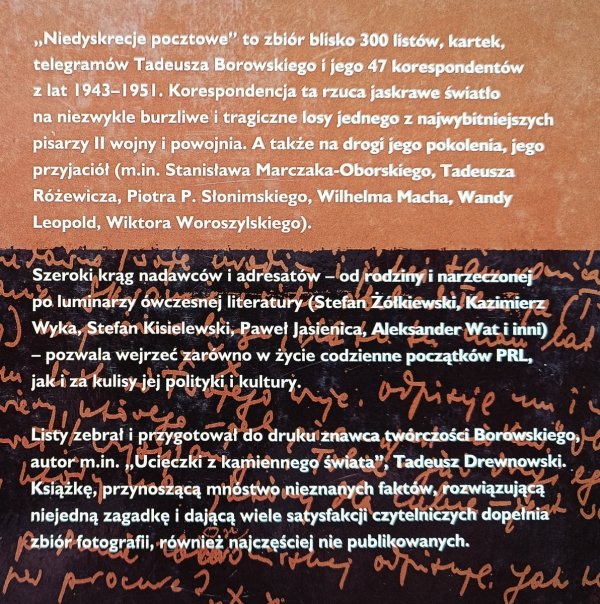 „Niedyskrecje pocztowe” to zbiór blisko 300 listów, kartek,
telegramów Tadeusza Borowskiego i jego 47 korespondentów
z lat 1943–1951. Korespondencja ta rzuca jaskrawe światło
na niezwykle burzliwe i tragiczne losy jednego z najwybitniejszych
pisarzy II wojny i powojnia. A także na drogi jego pokolenia, jego
przyjaciół (m.in. Stanisława Marczaka-Oborskiego, Tadeusza
Różewicza, Piotra P. Słonimskiego, Wilhelma Macha, Wandy
Leopold, Wiktora Woroszylskiego).
Szeroki krąg nadawców i adresatów – od rodziny i narzeczonej
po luminarzy ówczesnej literatury (Stefan Żółkiewski, Kazimierz
Wyka, Stefan Kisielewski, Paweł Jasienica, Aleksander Wat i inni)
– pozwala wejrzeć zarówno w życie codzienne początków PRL,
jak i za kulisy jej polityki i kultury.
Listy zebrał i przygotował do druku znawca twórczości Borowskiego,
autor m.in. „Ucieczki z kamiennego świata”, Tadeusz Drewnowski.
Książkę, przynoszącą mnóstwo nieznanych faktów, rozwiązującą
niejedną zagadkę i dającą wiele satysfakcji czytelniczych dopełnia
zbiór fotografii, również najczęściej nie publikowanych.